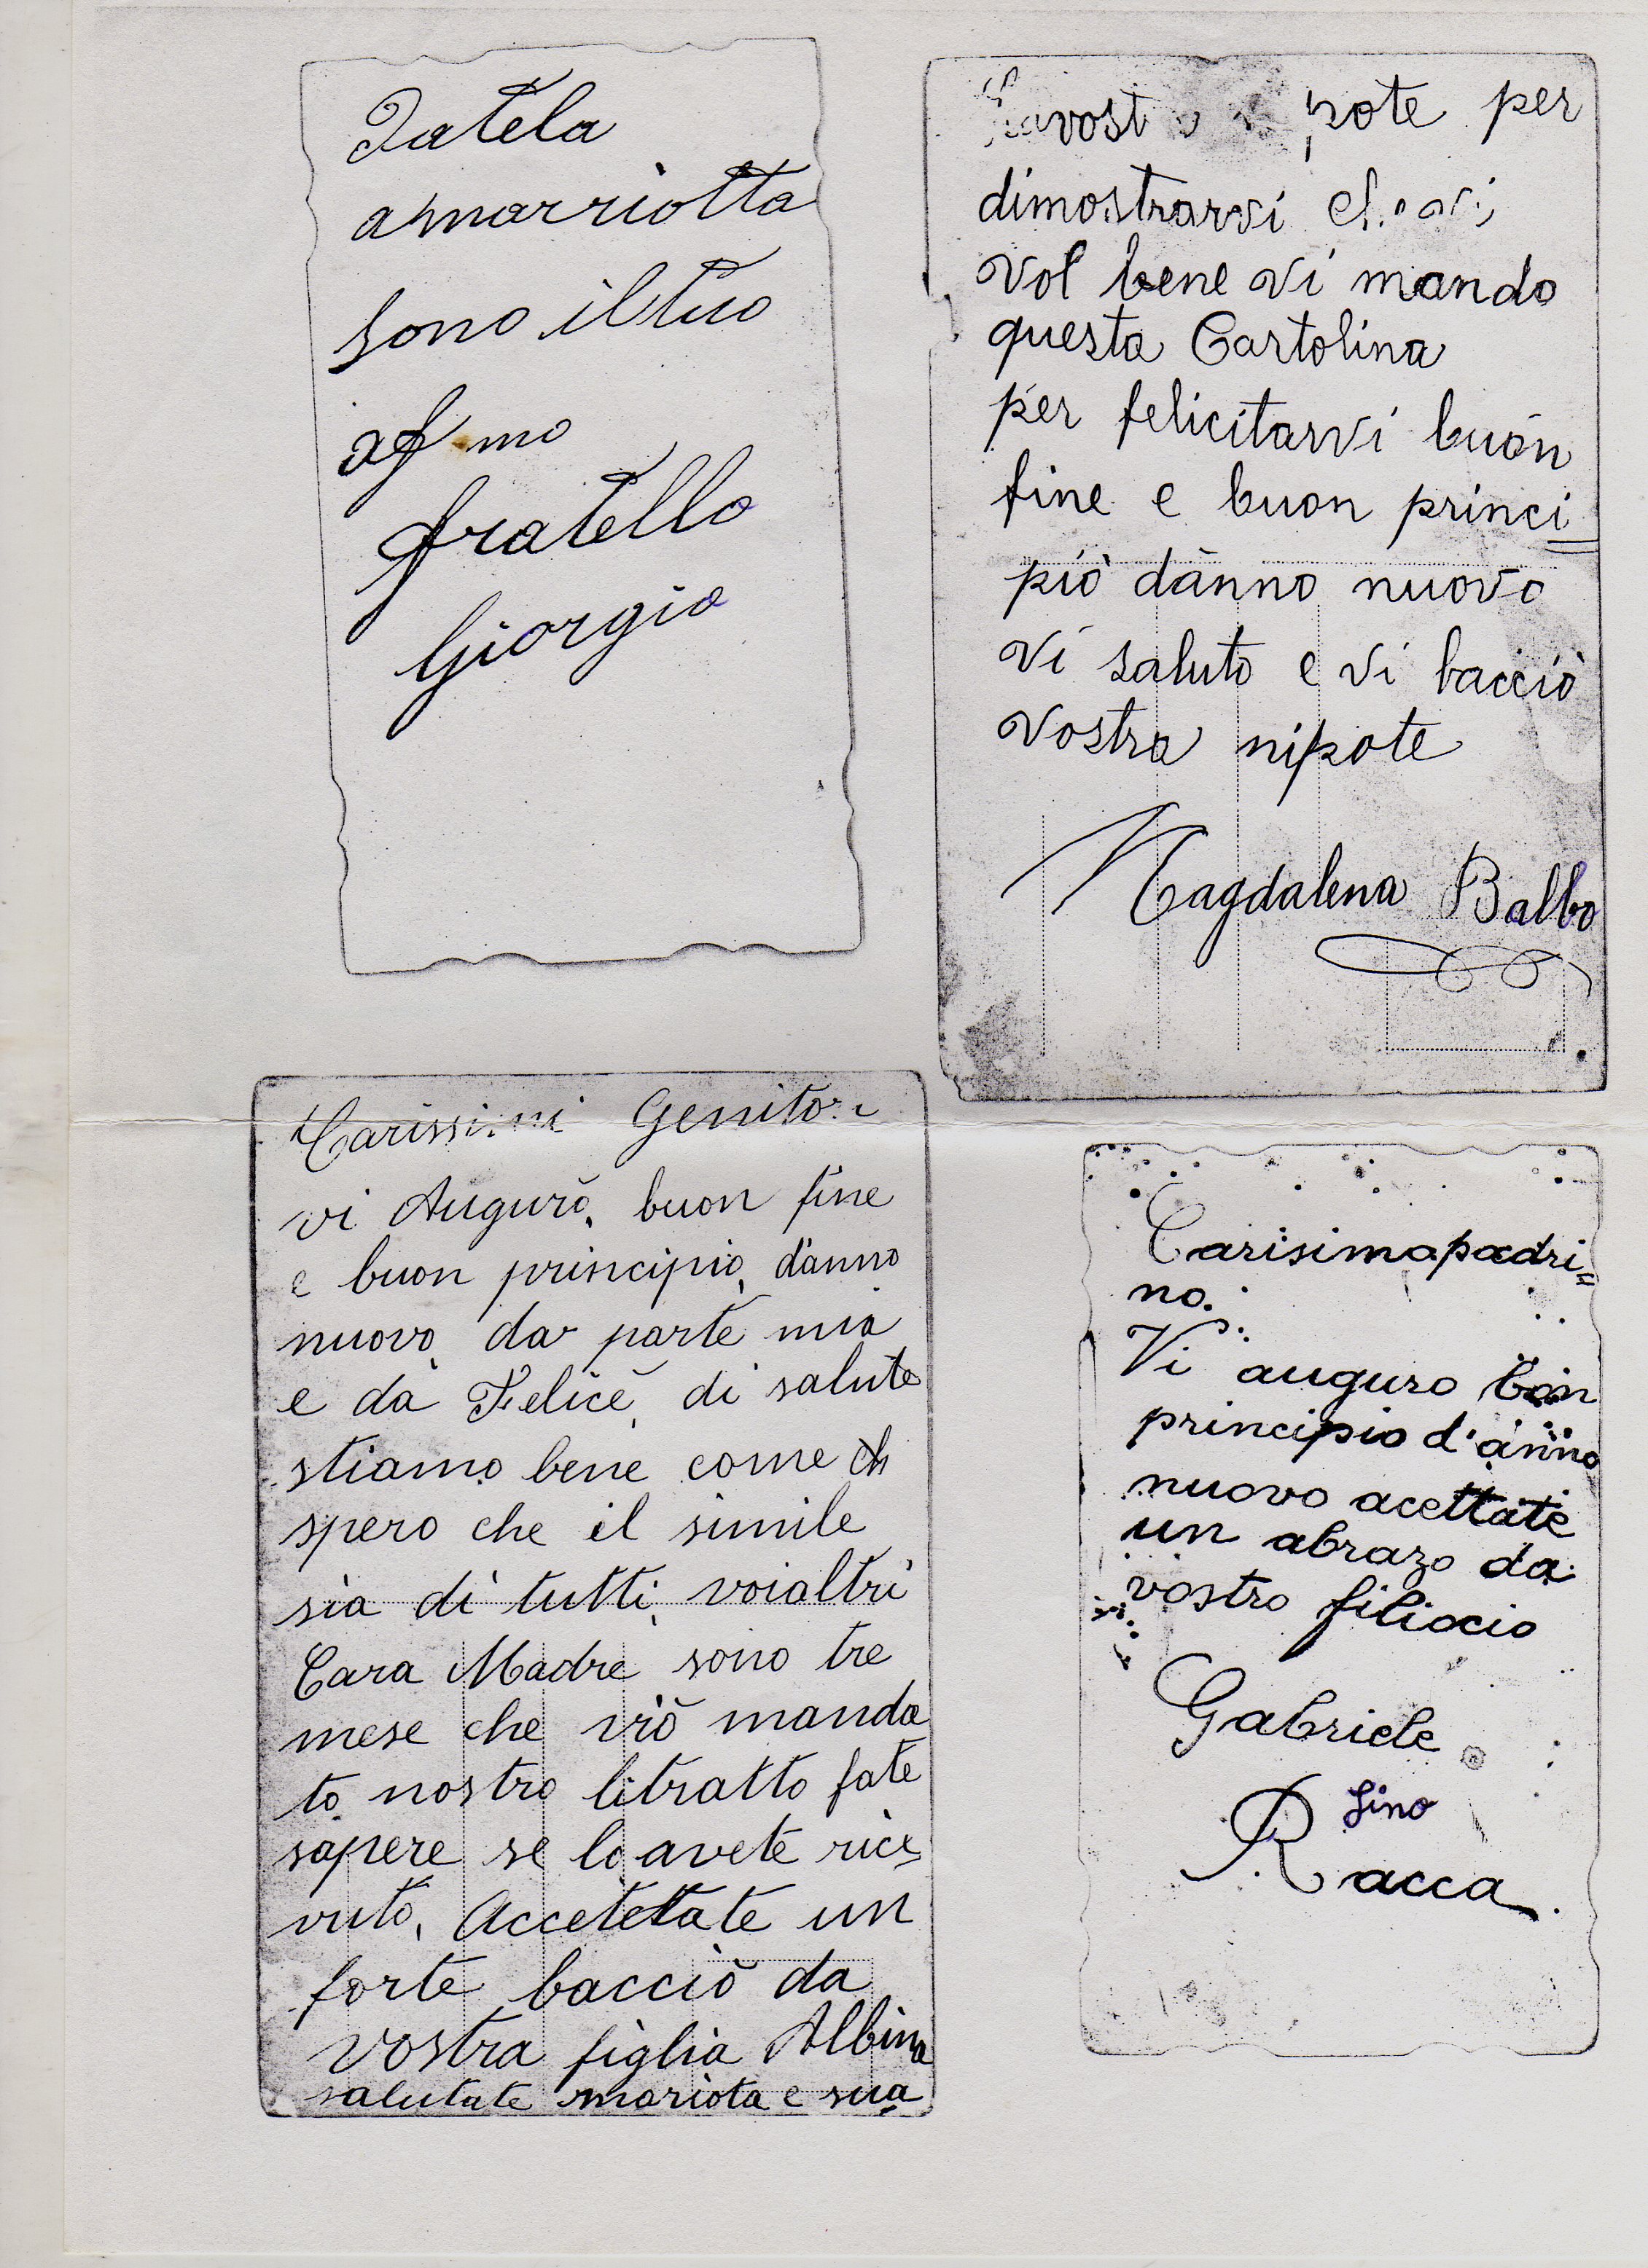 Datela
a marriotta
sono il tuo
af mo
fratello
Giorgio
per
dimostrarvi
vol bene vi mando
questa Cartolina
per felicitarvi buon
fine e buon princi=
piò dànno nuovo
vi saluto e vi bacciò
vostra nipote
Magdalena Balbo
Carissimi Genitori
vi Augurò, buon fine
e buon principio, d'anno
nuovo da parte mia
e da Felice, di salute
stiamo bene come ch
spero che il simile
sia di tutti, voialtri
Cara Madre sono tre
mese che viò manda
to nostro litratto fate
sapere se lo avete rice
vuto, Accetetate un
forte bacciò da
vostra figlia Albina
salutate mariota e sua
Carisimo padri=
no.
Vi auguro bon
principio d'anno
nuovo acettate
un abrazo da
vostro filiocio
Gabriele
fino
Racca